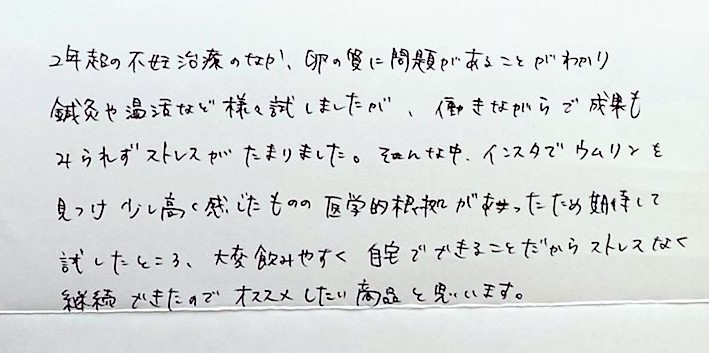 2年超の不妊治療のなか、卵の質に問題があることがわかり
鍼灸や温活など様々試しましたが、働きながらで成果も
みられずストレスがたまりました。そんな中、インスタでウムリンを
見つけ少し高く感じたものの医学的根拠があったため期待して
試したところ、大変飲みやすく自宅でできることだからストレスなく
継続できたのでオススメしたい商品と思います。